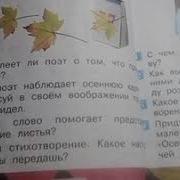 леет ли поэт о том, что пр
?
оэт наблюдает осеннюю кар
суй в своём воображении т
идел.
слово помогает предста
ие листья?
й стихотворение. Какое нас
ы передашь?
С чем
ву?
Как вы
ми
ду роз
Какое
ворен
Приду
мале
«Осе
чей